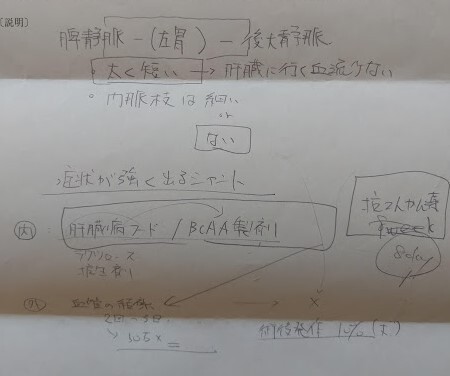 〔説明〕
脾静脈 - (左胃) - 後大静脈
・太く短い → 肝臓に行く血流少ない
。門脈枝は細い
or
ない
症状が強く出るシャント
内: 肝臓病フード / BCAA製剤
ラクツロース
抗生剤
抗てんかん薬
week
外 血管の
2回〜3回
→ ×
術後発作 10% (犬)